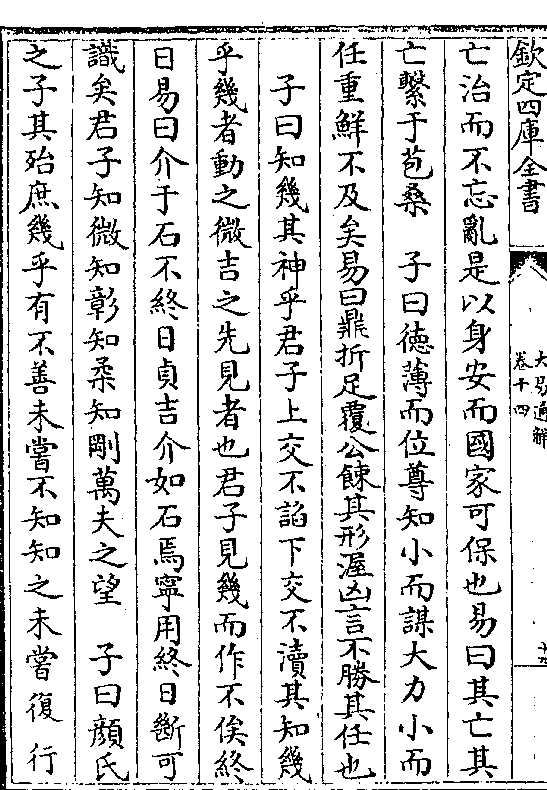 欽定四庫全書
大易通解
卷十四
十九
亡治而不忘亂是以身安而國家可保也易曰其亡其
亡繫于苞桑　子曰德薄而位尊知小而謀大力小而
任重鮮不及矣易曰鼎折足覆公餗其形渥凶言不勝其任也
子曰知幾其神乎君子上交不諂下交不瀆其知幾
乎幾者動之微吉之先見者也君子見幾而作不俟終
日易曰介于石不終日貞吉介如石焉寧用終日斷可
識矣君子知微知彰知柔知剛萬夫之望　子曰顔氏
之子其殆庶幾乎有不善未嘗不知知之未嘗復行